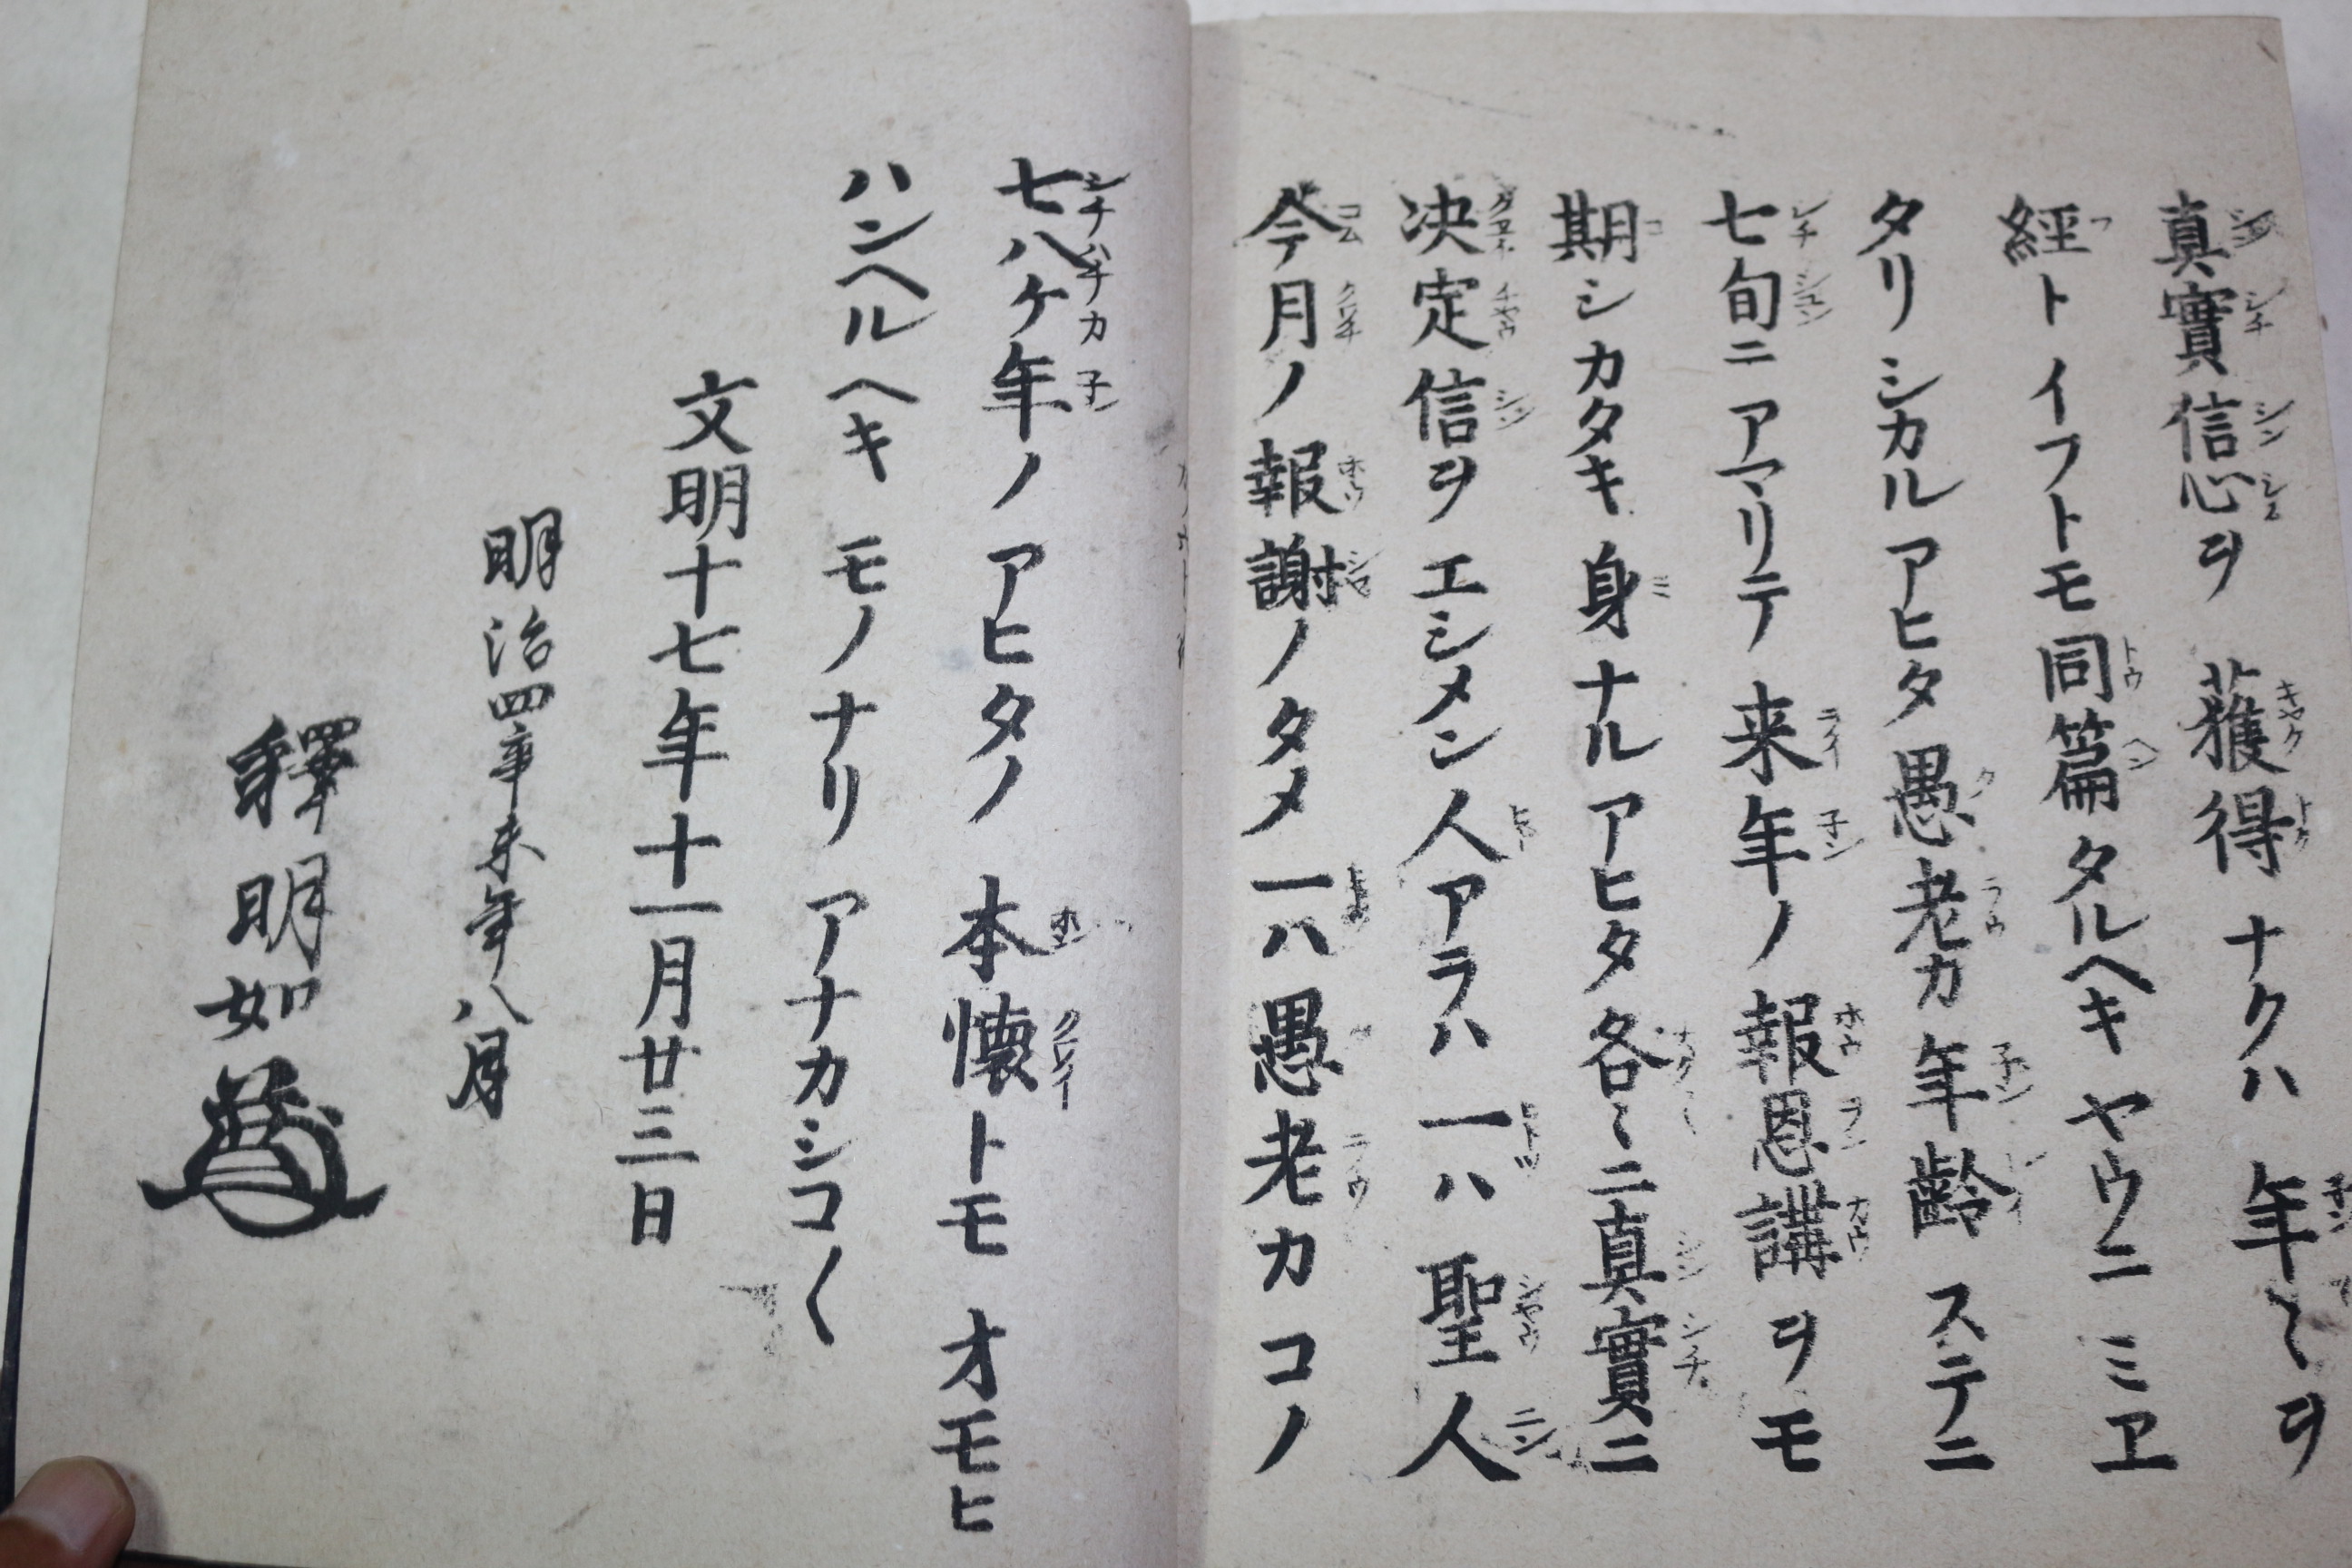 真實信心ヲ獲得ナクハ年〻ヲ
經トイフトモ同篇タルヘキヤウニミヱ
タリシカルアヒタ愚老カ年齡ステニ
七旬ニアマリテ来年ノ報恩講ヲモ
期シカタキ身ナルアヒタ各〻ニ真實ニ
决定信ヲエシメン人アラハ一ハ聖人
今月ノ報謝ノタメ一ハ愚老カコノ
七八ケ年ノアヒタノ本懐トモオモヒ
ハンヘルヘキモノナリアナカシコ〱
文明十七年十一月廿三日
明治四辛未年八月
釋明如